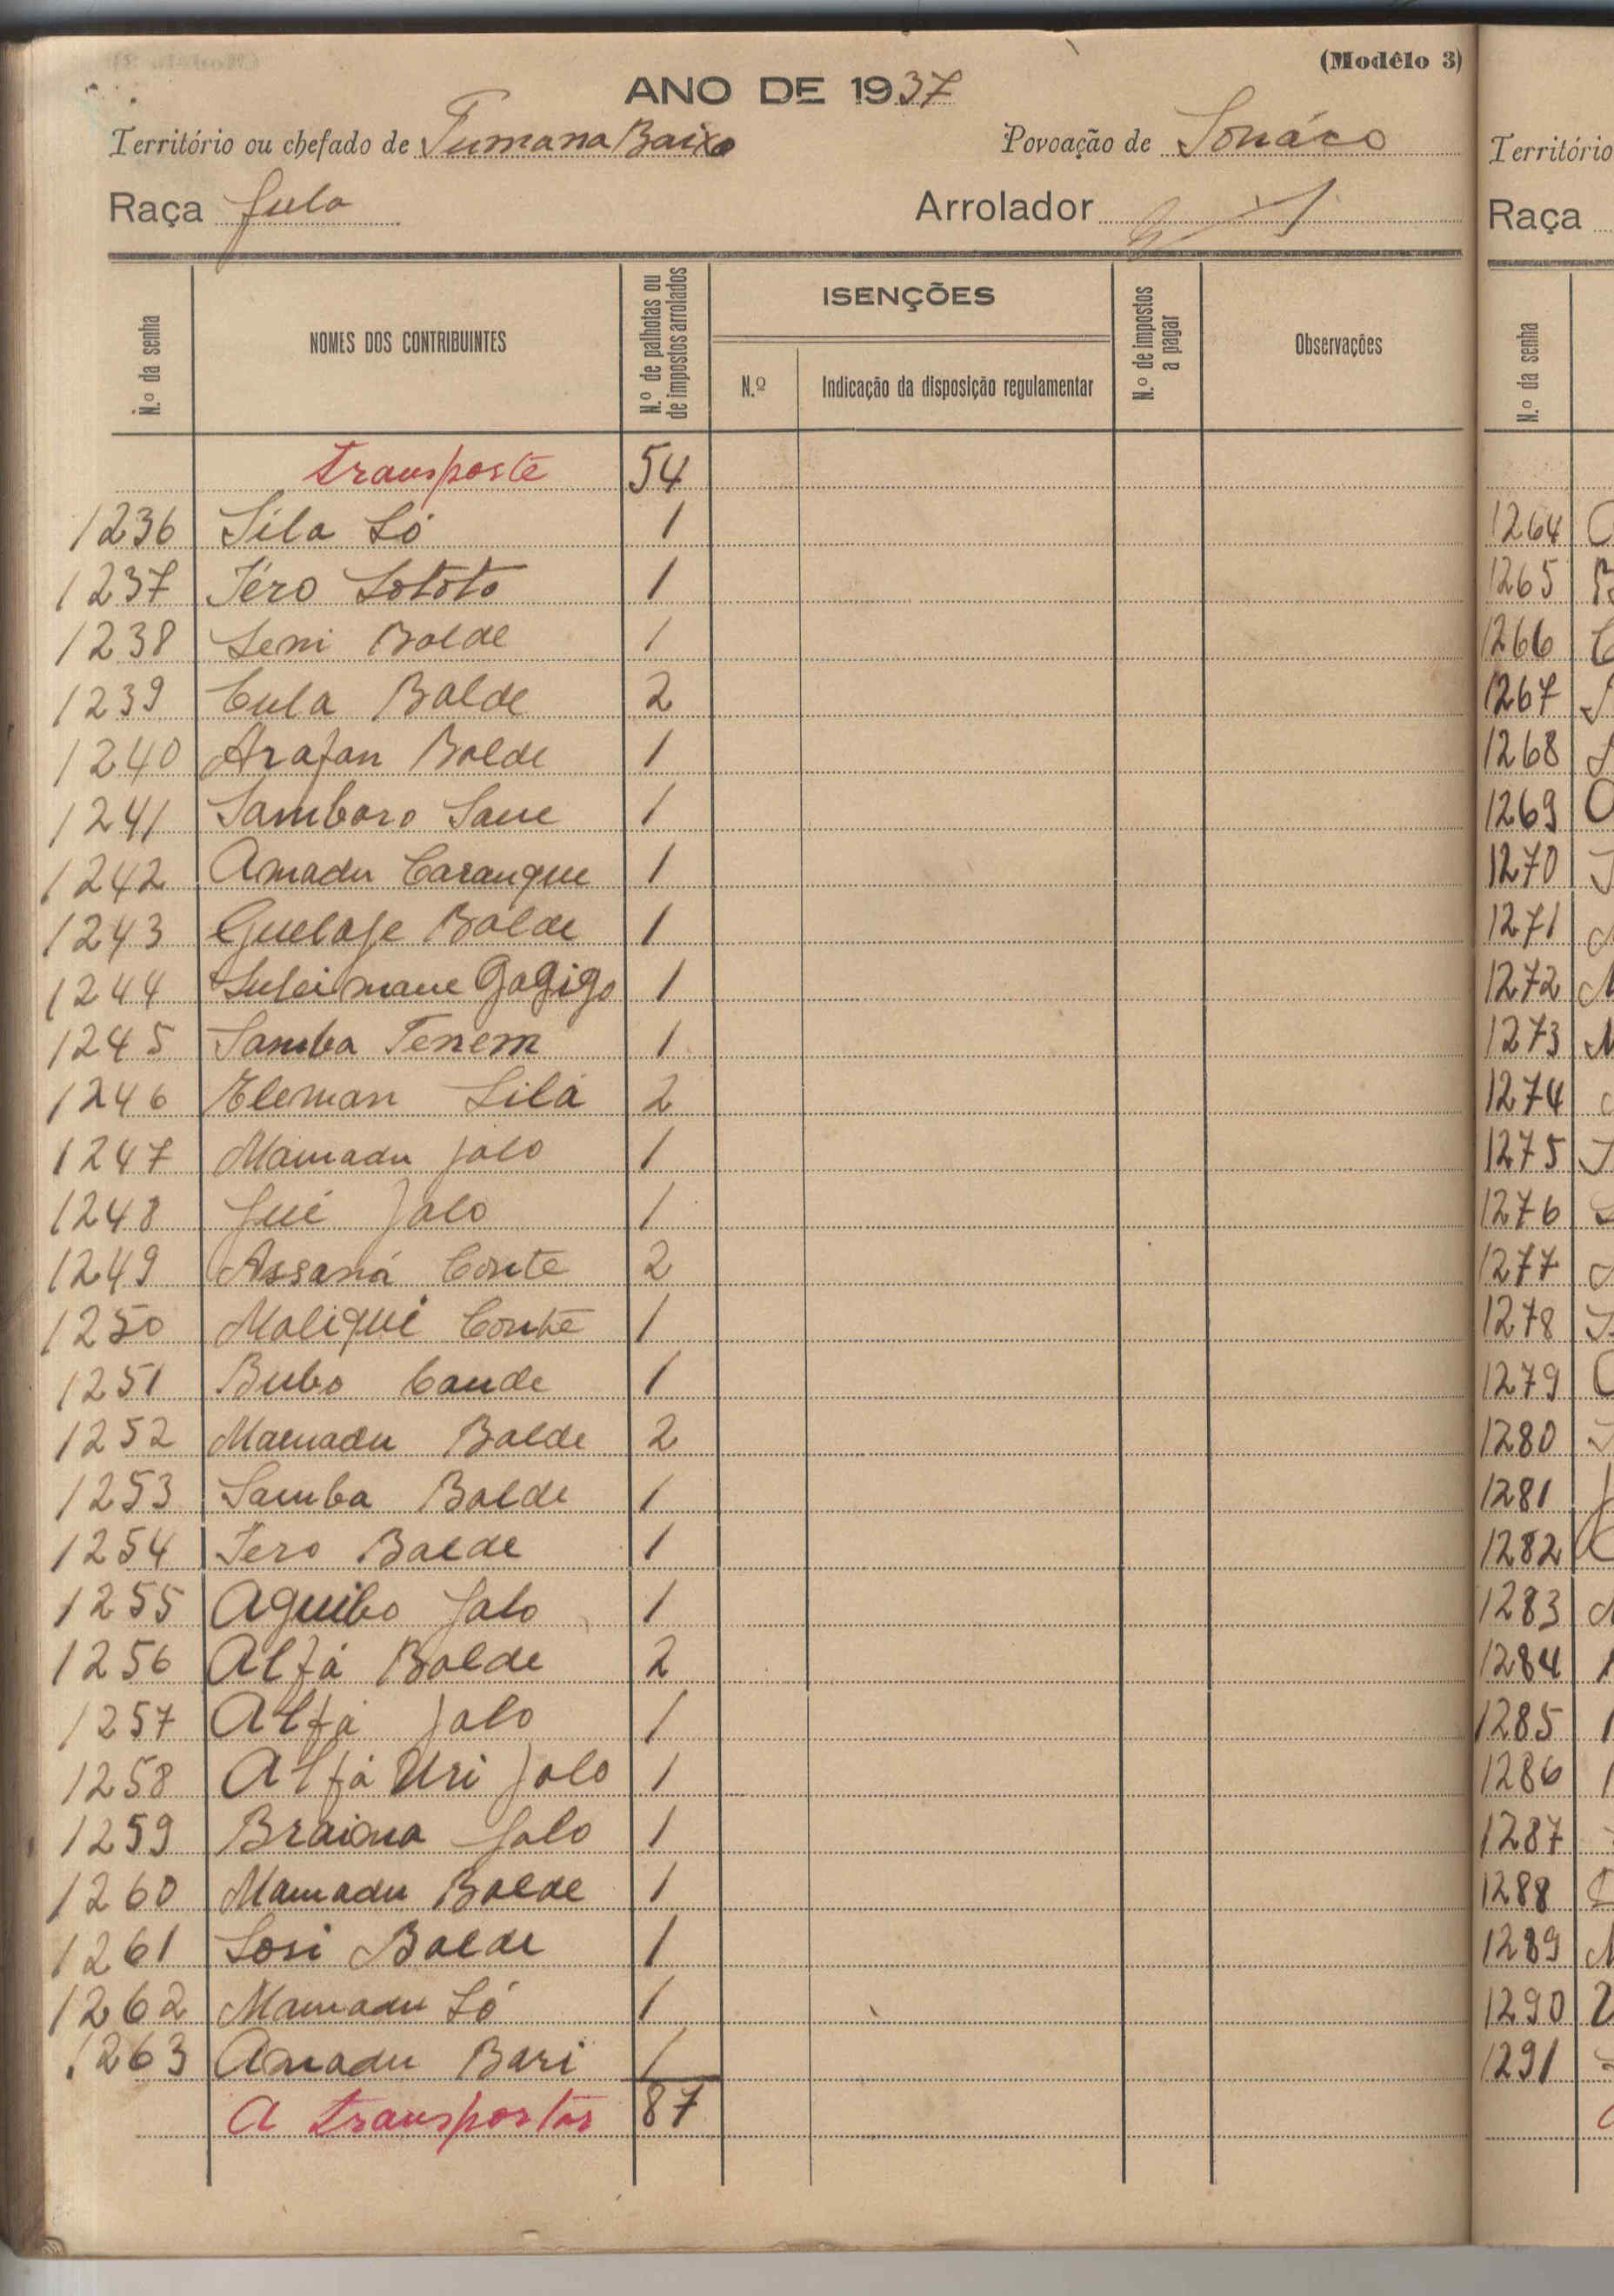 (Modêlo 3)
ANO DE 1937
Território ou chefado de Tumana Baixo Povoação de Sonáco
Raça fula Arrolador
N.º da senha NOMES DOS CONTRIBUINTES N.º de palhotas ou de impostos arrolados ISENÇÕES N.º Indicação da disposição regulamentar N.º de impostos a pagar Observações
transporte 54
1236 Sila Só 1
1237 Iéro Sototo 1
1238 Seni Balde 1
1239 Cula Balde 2
1240 Arafan Balde 1
1241 Samboro Sane 1
1242 Amadu Caranque 1
1243 Guelaje Balde 1
1244 Suleimane Gagigo 1
1245 Samba Tenem 1
1246 Eleman Silá 2
1247 Mamadu Jalo 1
1248 Jalo 1
1249 Assaná Conte 2
1250 Malique Conte 1
1251 Bubo Cande 1
1252 Mamadu Balde 2
1253 Samba Balde 1
1254 Iero Balde 1
1255 Aguibo Jalo 1
1256 Alfá Balde 2
1257 Alfá Jalo 1
1258 Alfá Uri Jalo 1
1259 Braima Jalo 1
1260 Mamadu Balde 1
1261 Sori Balde 1
1262 Mamadu Só 1
1263 Amadu Bari 1
A transportar 87
Território
Raça
N.º da senha
1264
1265
1266
1267
1268
1269
1270
1271
1272
1273
1274
1275
1276
1277
1278
1279
1280
1281
1282
1283
1284
1285
1286
1287
1288
1289
1290
1291